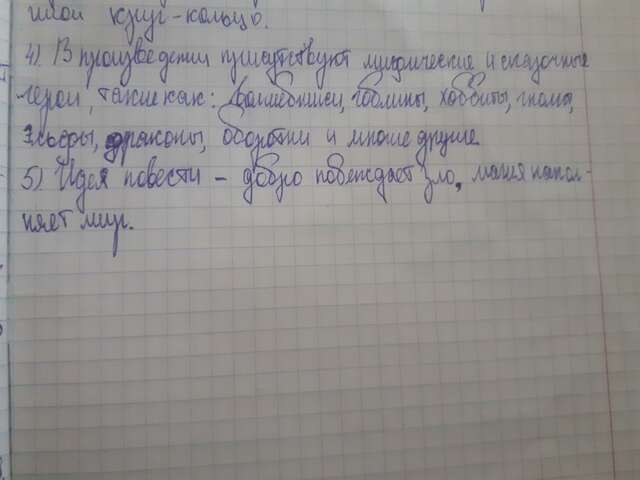 круг-кольцо.
4) В произведении присутствуют мифические и сказочные
герои, такие как: волшебники, гоблины, хоббиты, гномы,
эльфы, драконы, оборотни и многие другие
5) Идея повести – добро побеждает зло, магия напол-
няет мир.